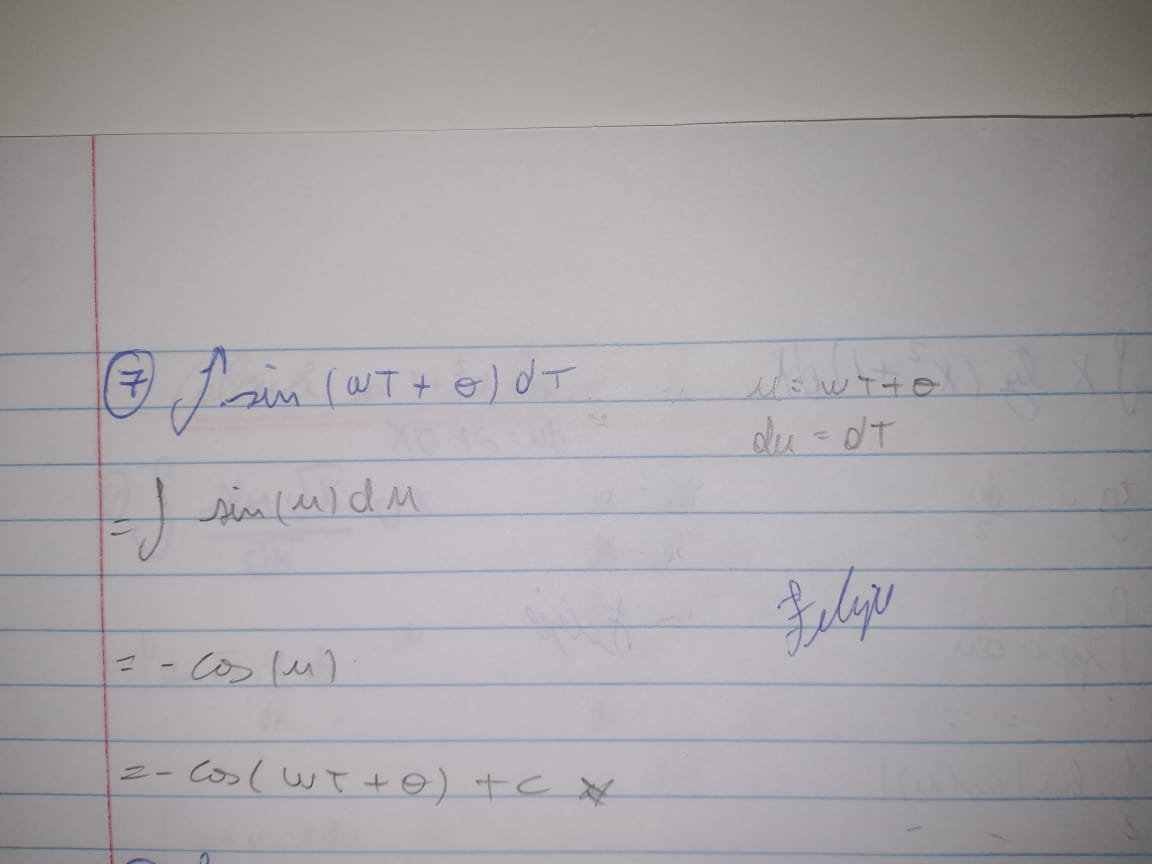 ⑦ ∫ sin (wT + θ) dT
u = wT + θ
du = dT
= ∫ sin(u) du
Felipe
= - cos (u)
= - cos( wT + θ) + c